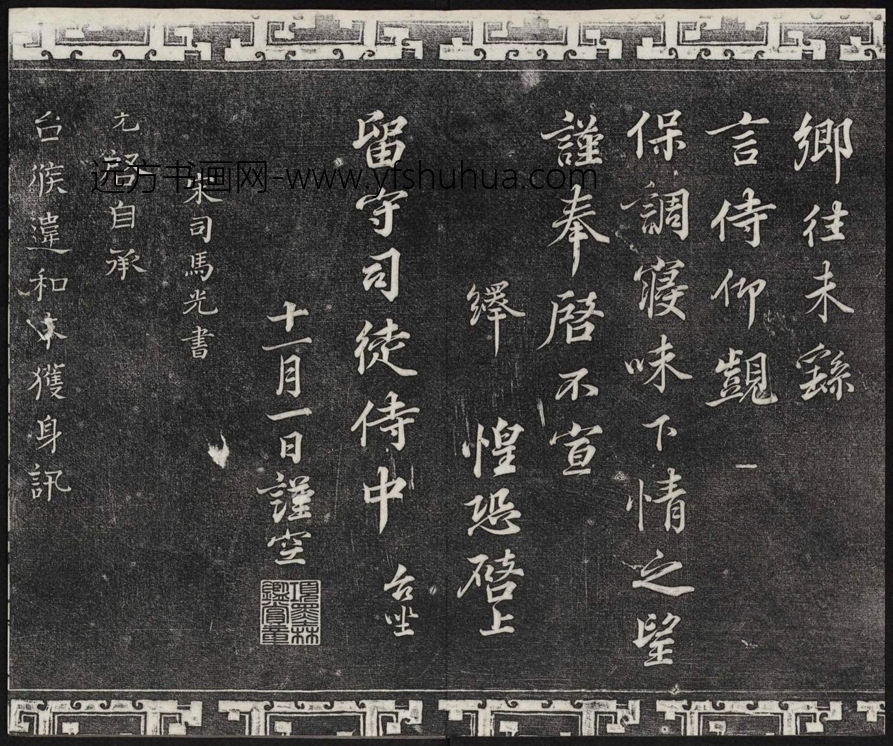 鄉往未繇
言侍仰覬
保調寢味下情之望
謹奉啓不宣
繹 惶恐啓上
留守司徒侍中 台坐
十一月一日謹空
宋司馬光書
光啓自承
台候違和未獲身訊
遠方书画网-www.yfshuhua.com